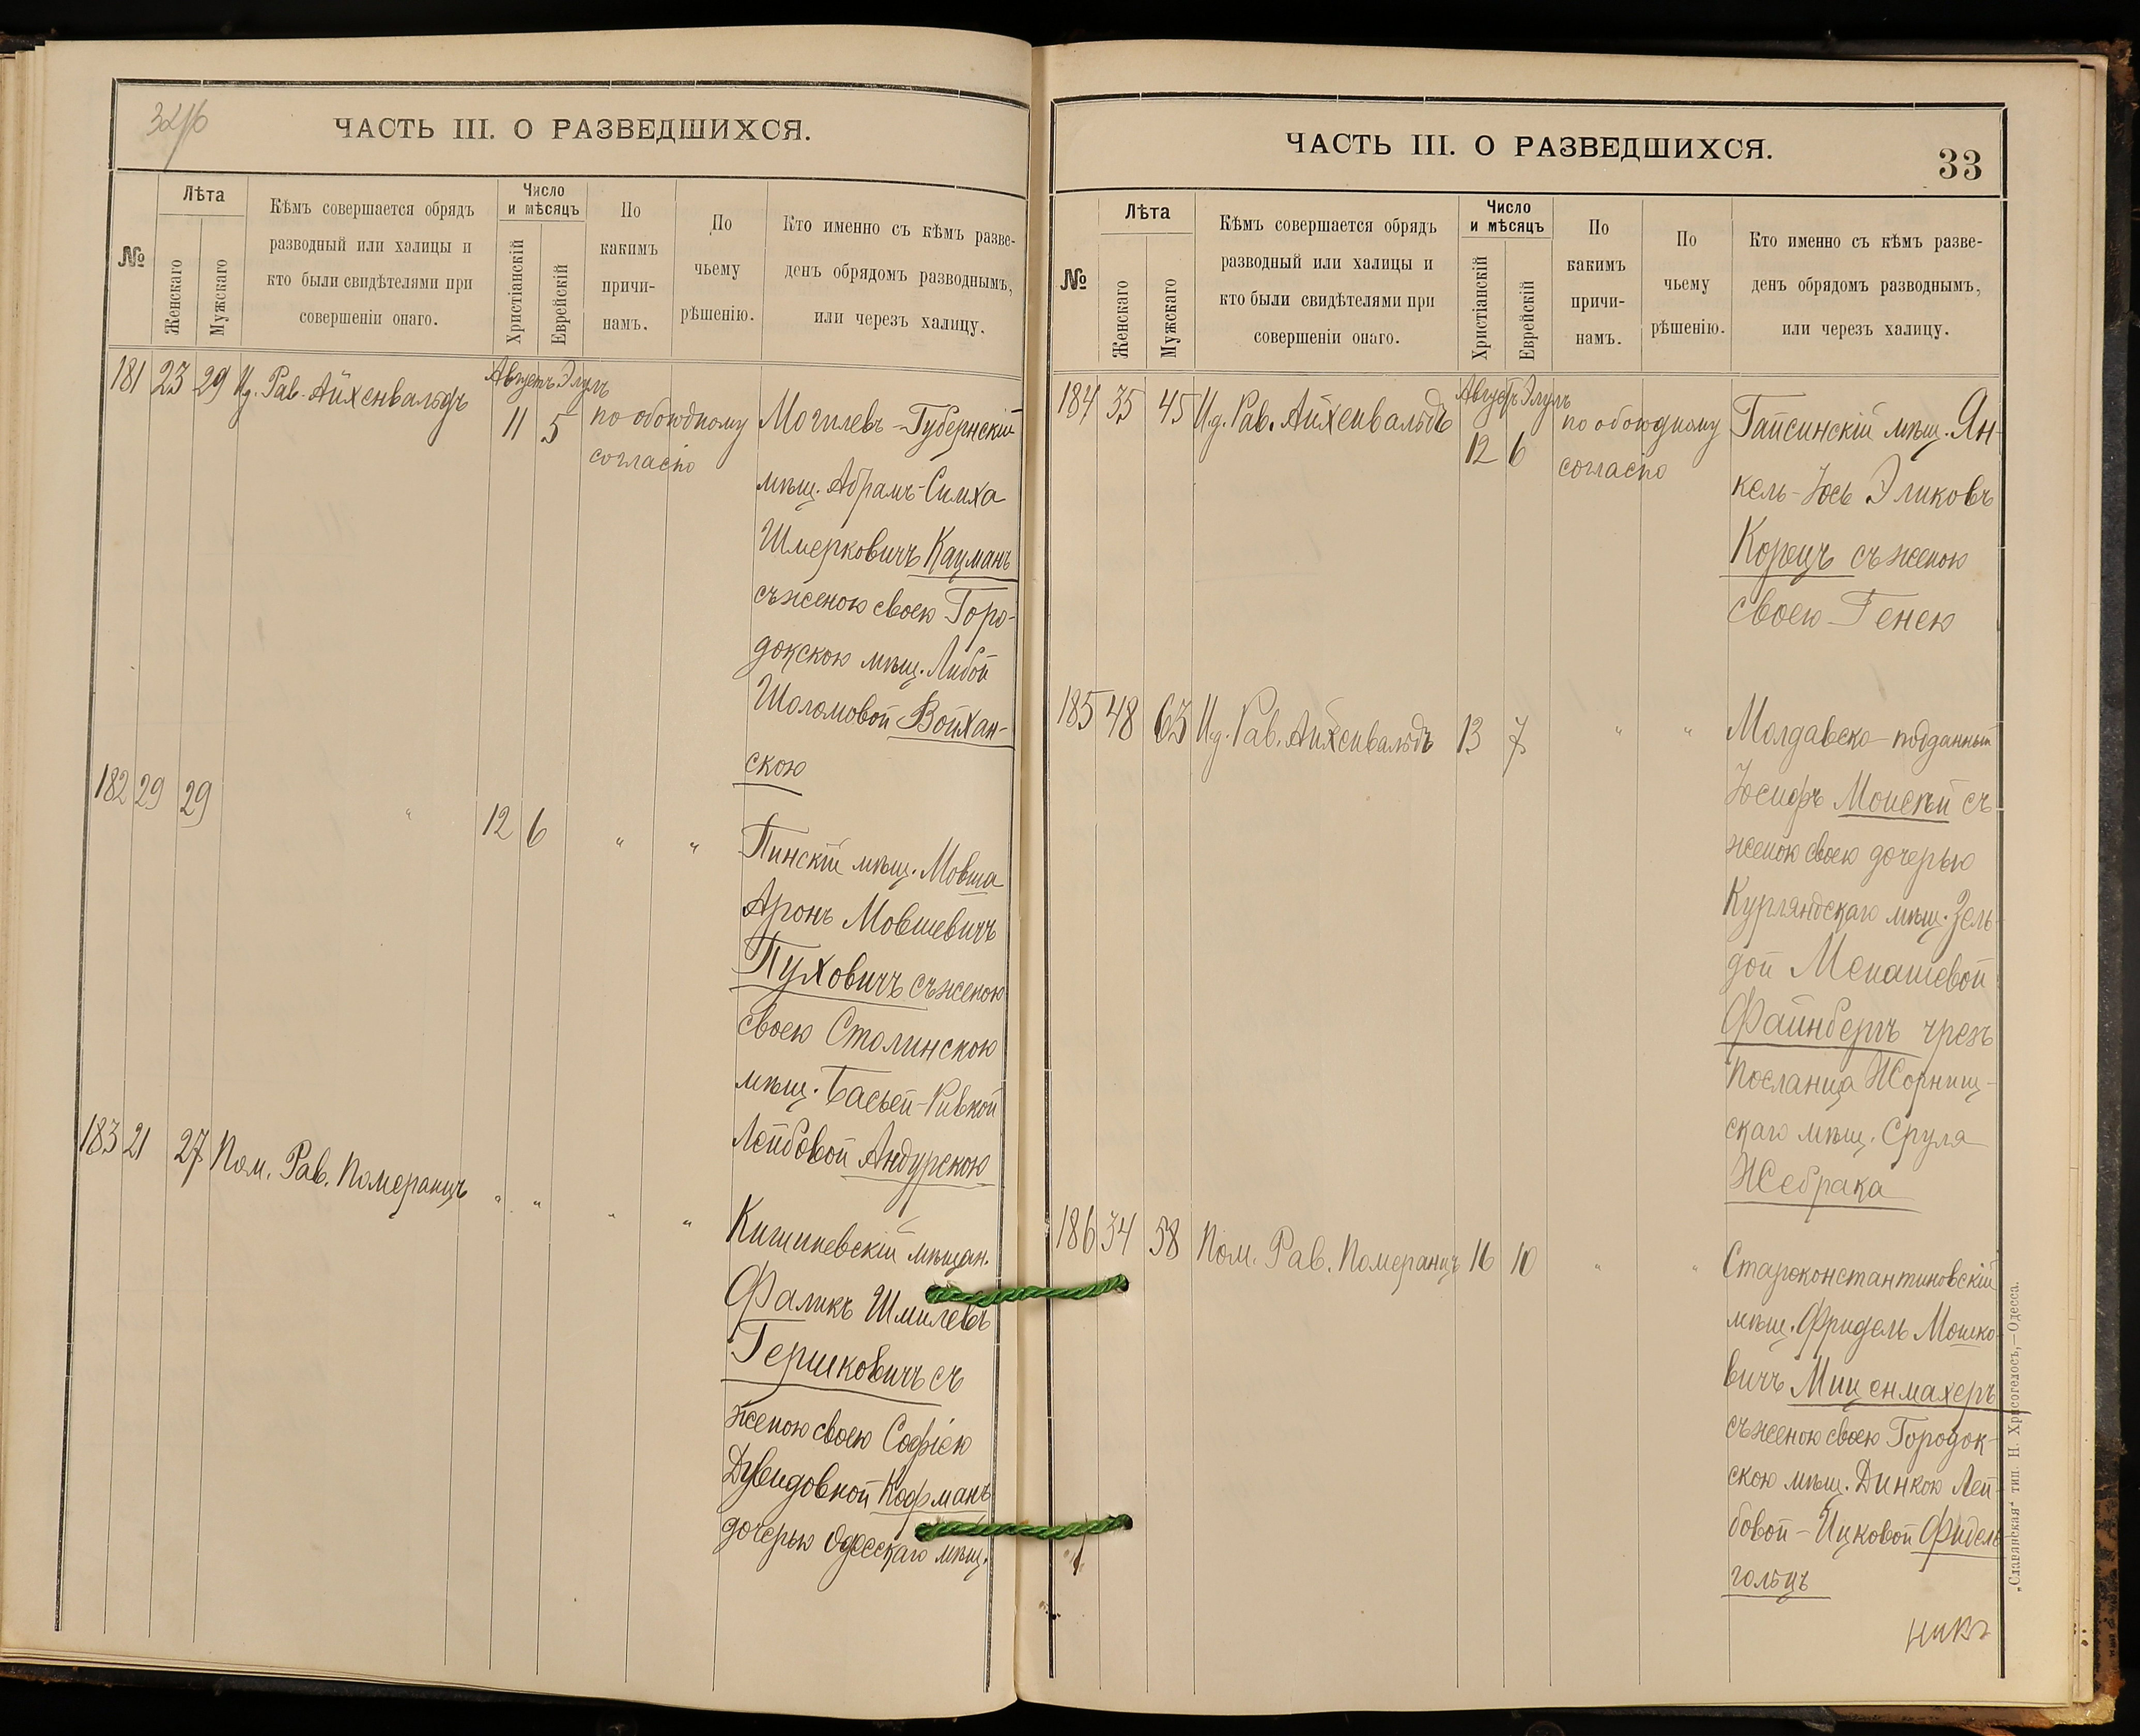 ЧАСТЬ III. О РАЗВЕДШИХСЯ.
№
Лѣта
Женскаго
Мужскаго
Кѣмъ совершается обрядъ
разводный или халицы и
кто были свидѣтелями при
совершеніи онаго.
Число
и мѣсяцъ
Христіанскій
Еврейскій
По
какимъ
причи-
намъ.
По
чьему
рѣшенію.
Кто именно съ кѣмъ разве-
денъ обрядомъ разводнымъ,
или черезъ халицу.
181 23 29 Ид. Рав. Айхенвальдъ
Августъ Элулъ
11 5
по обоюдному
согласію
Могилевъ-Губернскій
мѣщ. Абрамъ-Симха
Шмерковичъ Кацманъ
съ женою своею Горо-
докскою мѣщ. Либой
Шоломовой Войхан-
скою
182 29 29 " 12 6 " "
Пинскій мѣщ. Мовша
Аронъ Мовшевичъ
Пуховичъ съ женою
своею Столинскою
мѣщ. Басьей-Ривкой
Лейбовой Андурскою
183 21 27 Пом. Рав. Померанцъ " " " "
Кишиневскій мѣщан.
Фаликъ Шмилевъ
Гершковичъ съ
женою своею Софіею
Дувидовной Кофманъ
дочерью Одесскаго мѣщ.
ЧАСТЬ III. О РАЗВЕДШИХСЯ.
33
№
Лѣта
Женскаго
Мужскаго
Кѣмъ совершается обрядъ
разводный или халицы и
кто были свидѣтелями при
совершеніи онаго.
Число
и мѣсяцъ
Христіанскій
Еврейскій
По
какимъ
причи-
намъ.
По
чьему
рѣшенію.
Кто именно съ кѣмъ разве-
денъ обрядомъ разводнымъ,
или черезъ халицу.
184 35 45 Ид. Рав. Айхенвальдъ
Августъ Элулъ
12 6
по обоюдному
согласію
Гайсинскій мѣщ. Ян-
кель-Іось Эликовъ
Корецъ съ женою
своею Генею
185 48 63 Ид. Рав. Айхенвальдъ 13 7 " "
Молдавско-подданный
Іосифъ Моисѣй съ
женою своею дочерью
Курляндскаго мѣщ. Зель-
дой Менашевой
Файнбергъ чрезъ
посланца Жорнищ-
скаго мѣщ. Сруля
Жебрака
186 34 58 Пом. Рав. Померанцъ 16 10 " "
Староконстантиновскій
мѣщ. Фридель Мошко-
вичъ Миценмахеръ
съ женою своею Городок-
скою мѣщ. Динкою Лей-
бовой-Ицковой Фидель-
гольцъ
„Славянская“ тип. Н. Хрисогелосъ,—Одесса.